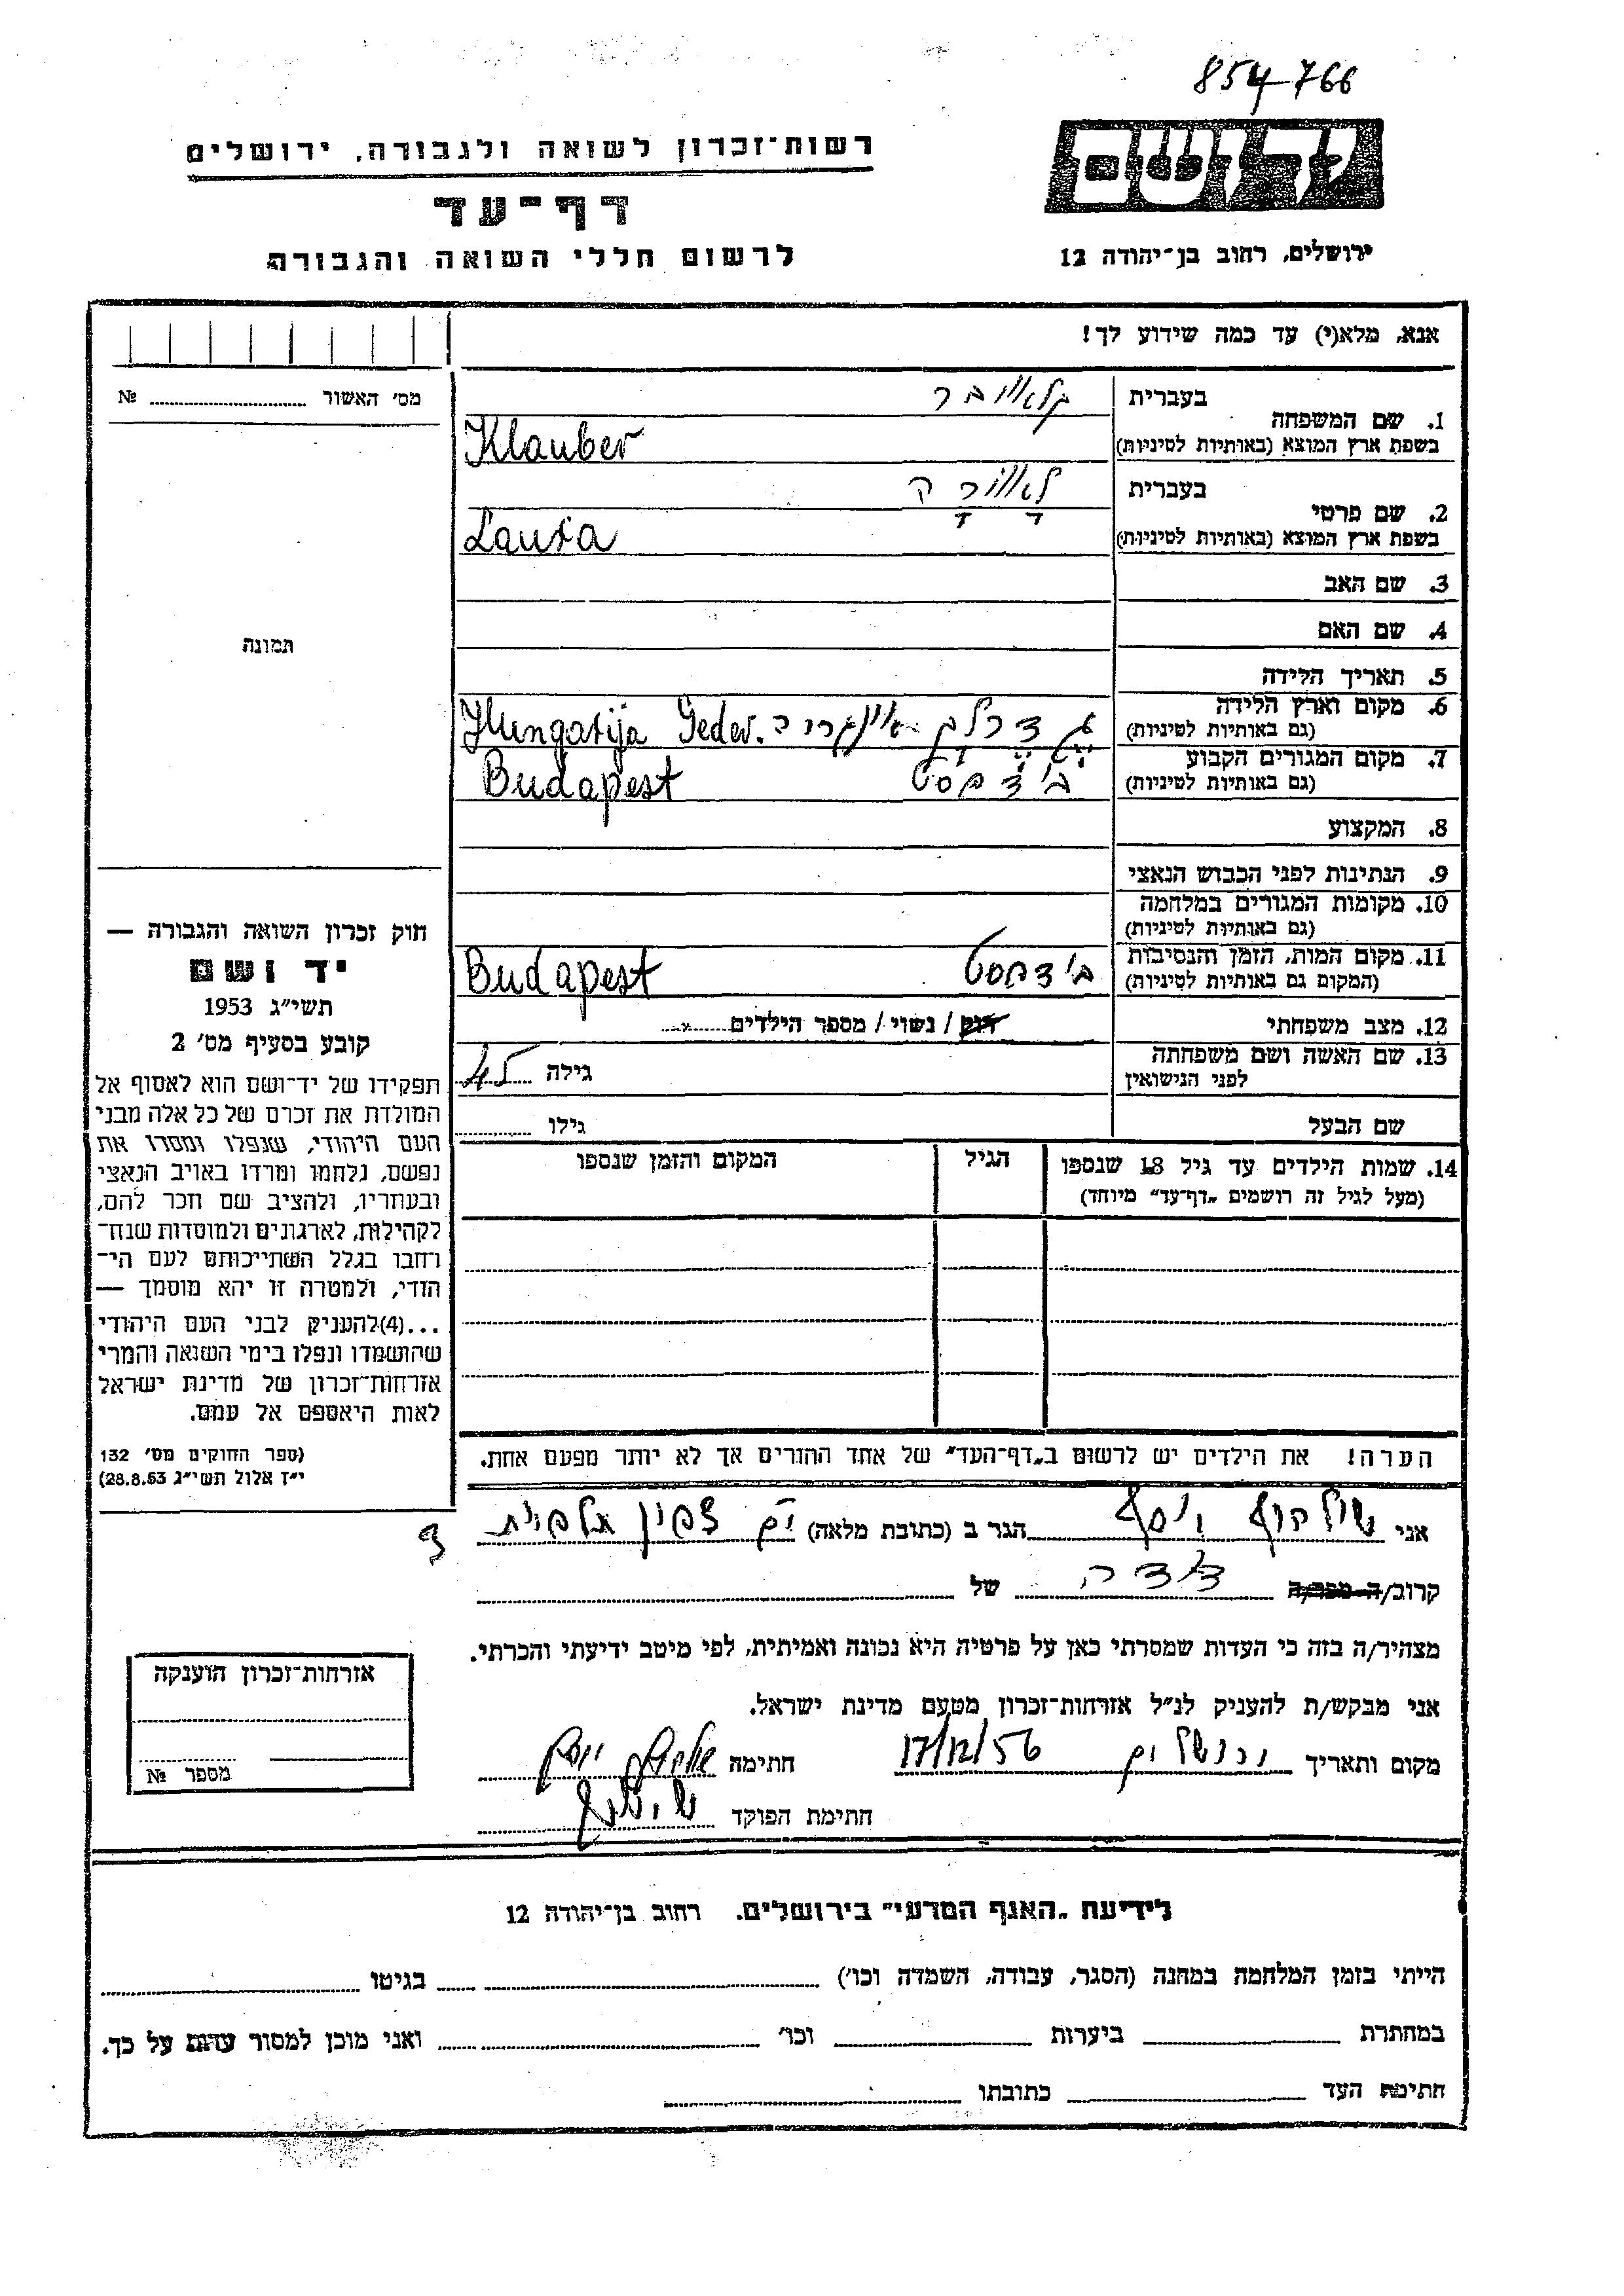 854766
רשות-זכרון לשואה ולגבורה, ירושלים
ידושם
דף-עד
לרשום חללי השואה והגבורה
ירושלים, רחוב בן-יהודה 12
אנא, מלא(י) עד כמה שידוע לך!
מס' האשור № 
1. שם המשפחה בעברית קלאובר
בשפת ארץ המוצא (באותיות לטיניות) Klauber
2. שם פרטי בעברית לאורה
בשפת ארץ המוצא (באותיות לטיניות) Laura
3. שם האב
4. שם האם
תמונה
5. תאריך הלידה
6. מקום וארץ הלידה
(גם באותיות לטיניות) Hungarija Geder.
7. מקום המגורים הקבוע
(גם באותיות לטיניות) בודפסט Budapest
8. המקצוע
9. הנתינות לפני הכבוש הנאצי
10. מקומות המגורים במלחמה
(גם באותיות לטיניות)
11. מקום המות, הזמן והנסיבות
(המקום גם באותיות לטיניות) בודפסט Budapest
12. מצב משפחתי רווק / נשוי / מספר הילדים
13. שם האשה ושם משפחתה
לפני הנישואין גילה 45
שם הבעל גילו
14. שמות הילדים עד גיל 18 שנספו הגיל המקום והזמן שנספו
(מעל לגיל זה רושמים "דף-עד" מיוחד)
חוק זכרון השואה והגבורה —
יד ושם
תשי"ג 1953
קובע בסעיף מס' 2
תפקידו של יד-ושם הוא לאסוף אל
המולדת את זכרם של כל אלה מבני
העם היהודי, שנפלו ומסרו את
נפשם, נלחמו ומרדו באויב הנאצי
ובעוזריו, ולהציב שם וזכר להם,
לקהילות, לארגונים ולמוסדות שנח-
רחבו בגלל השתייכותם לעם הי-
הודי, ולמטרה זו יהא מוסמך —
...(4)להעניק לבני העם היהודי
שהושמדו ונפלו בימי השואה והמרי
אזרחות-זכרון של מדינת ישראל
לאות היאספם אל עמם.
(ספר החוקים מס' 132
י"ז אלול תשי"ג 28.8.53)
הערה! את הילדים יש לרשום ב"דף-העד" של אחד ההורים אך לא יותר מפעם אחת.
אני יוסף הגר ב (כתובת מלאה)
קרוב/ה מכר/ה דודה של
מצהיר/ה בזה כי העדות שמסרתי כאן על פרטיה היא נכונה ואמיתית, לפי מיטב ידיעתי והכרתי.
אני מבקש/ת להעניק לנ"ל אזרחות-זכרון מטעם מדינת ישראל.
מקום ותאריך ירושלים 17/12/56 חתימה
חתימת הפוקד
אזרחות-זכרון הוענקה
מספר №
לידיעת "האגף המדעי" בירושלים. רחוב בן-יהודה 12
הייתי בזמן המלחמה במחנה (הסגר, עבודה, השמדה וכו') בגיטו
במחתרת ביערות וכו' ואני מוכן למסור עדות על כך.
חתימת העד כתובתו